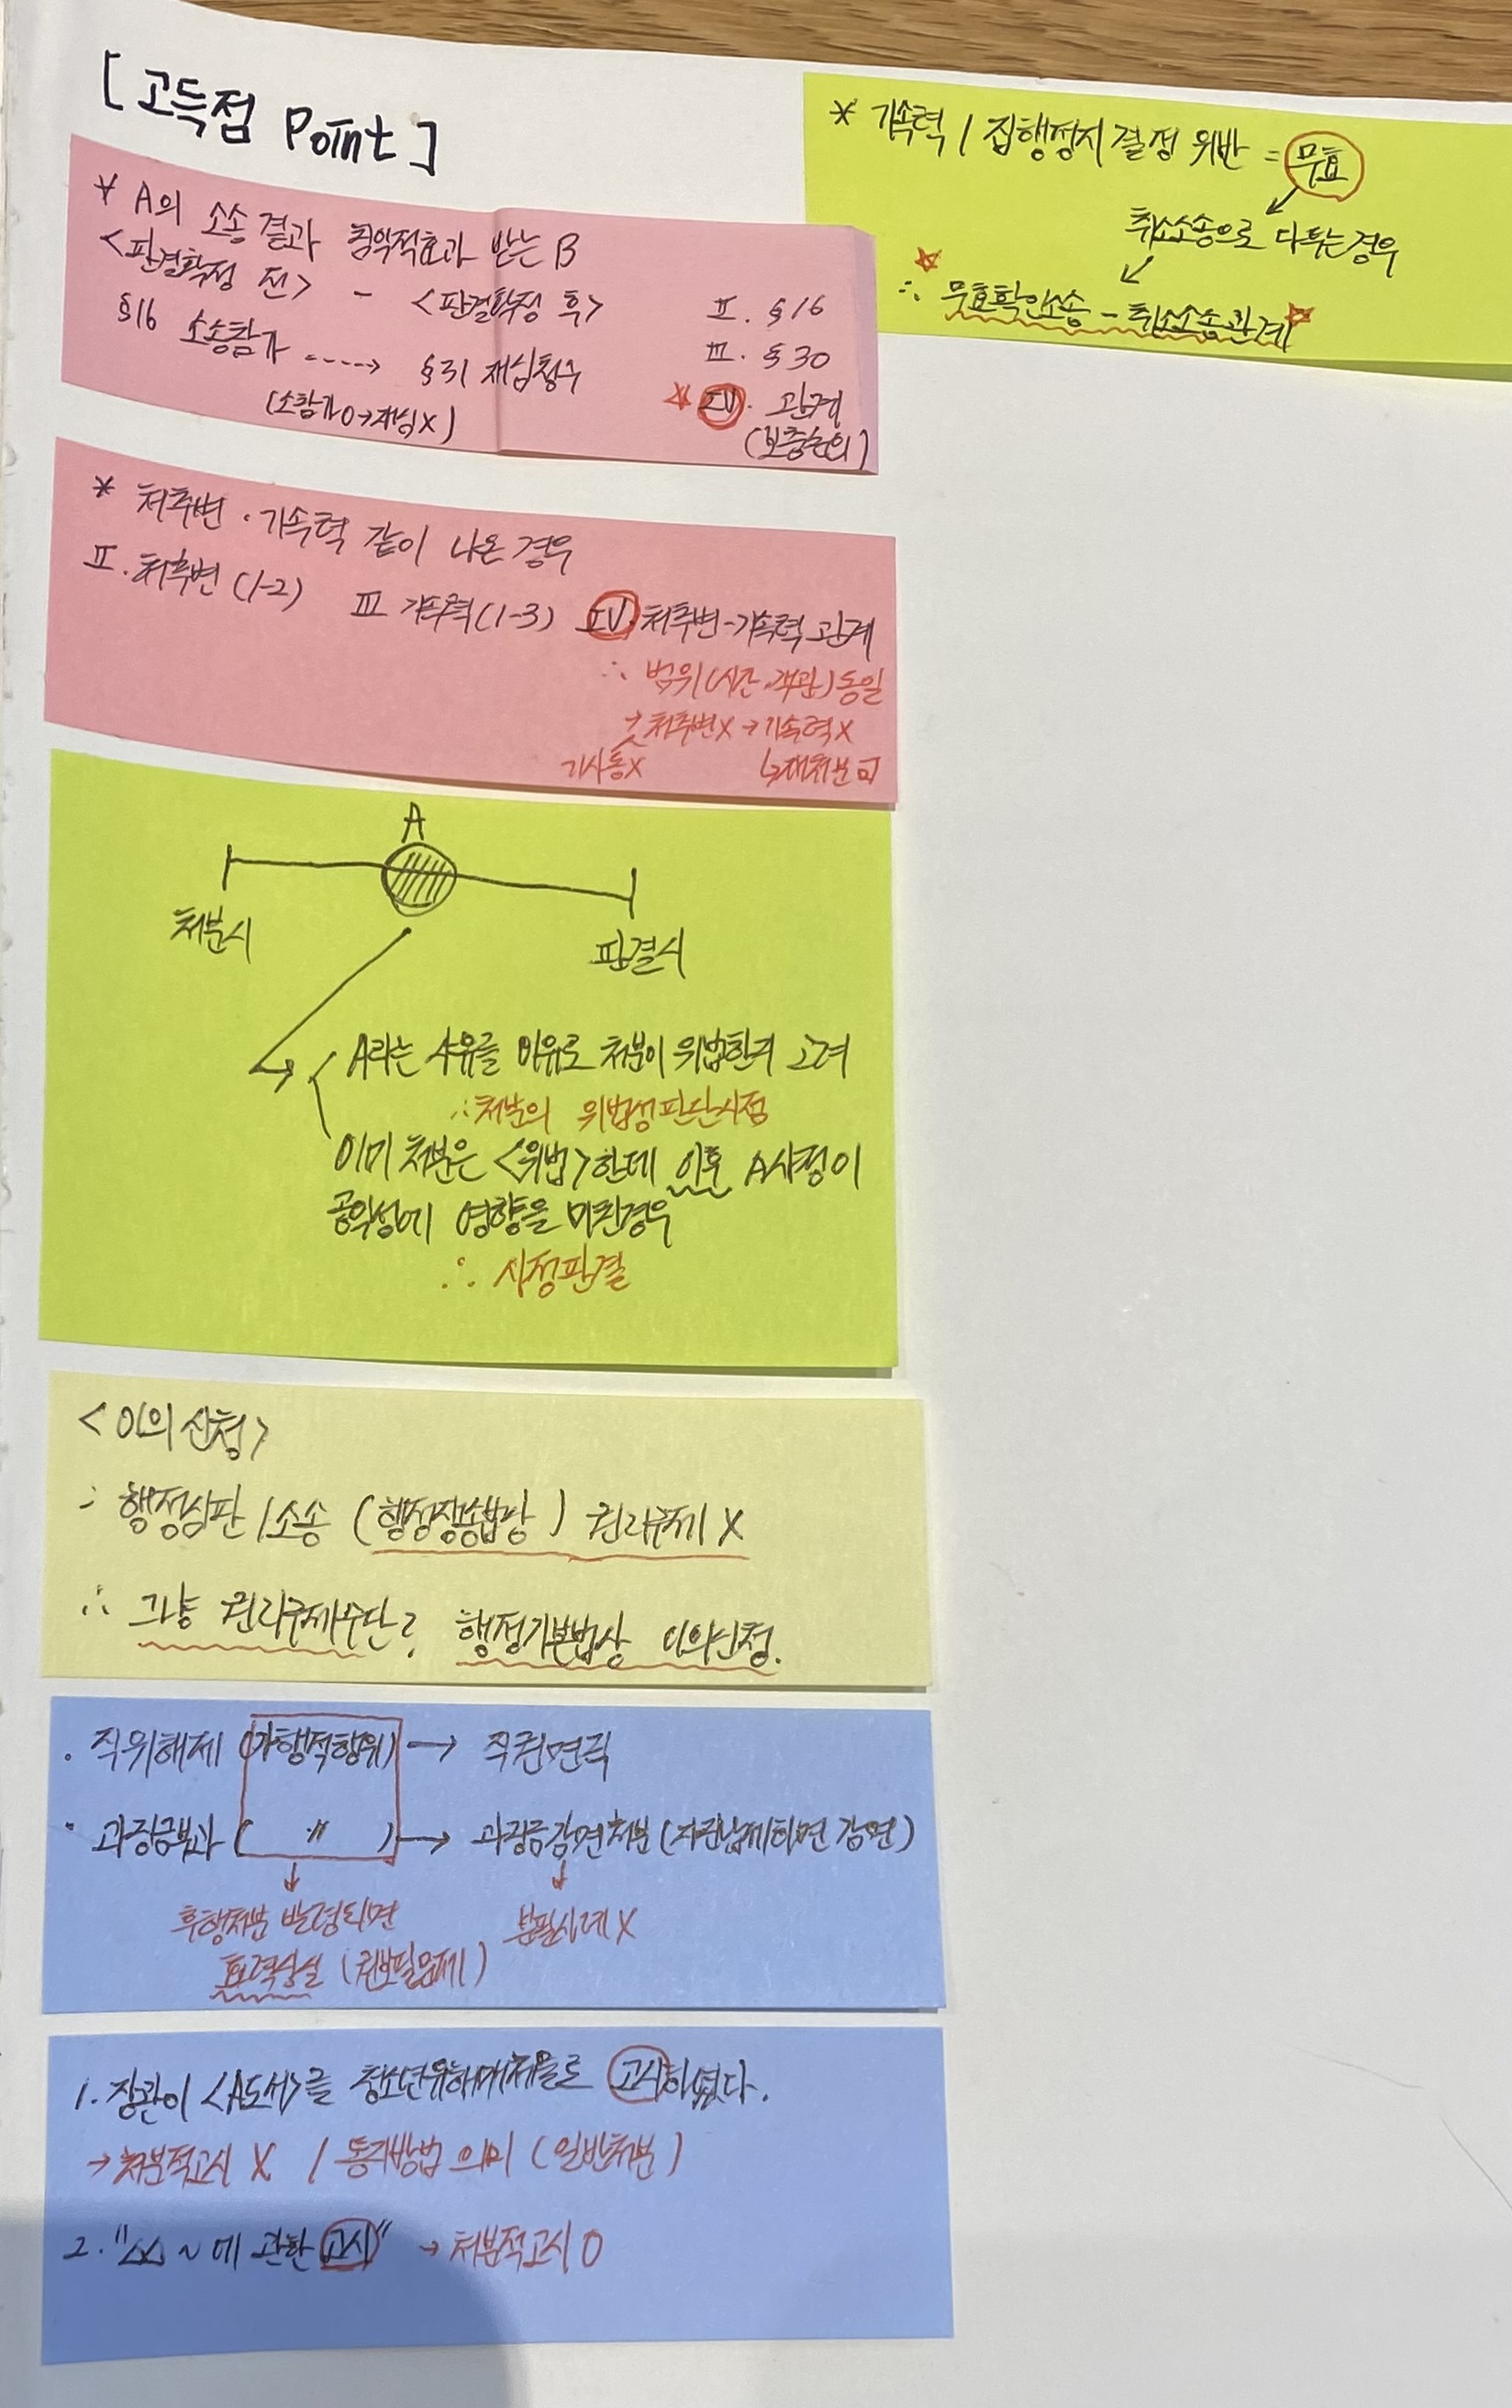 [고득점 Point]
* A의 소송결과 침익적효과 받는 B
<판결확정 전> - <판결확정 후>
§16 소송참가 ----> §31 재심청구
(소참가O→재심X)
Ⅱ. §16
Ⅲ. §30
☆ Ⅳ. 관계
(보충논의)
* 기속력 / 집행정지결정 위반 = 무효
취소소송으로 다투는경우
☆ ∴ 무효확인소송 - 취소소송관계 ☆
* 처추변·기속력 같이 나온 경우
Ⅱ. 처추변 (1-2) Ⅲ 기속력(1-3) Ⅳ. 처추변-기속력 관계
∴ 범위(시간·객관)동일
처추변X → 기속력X
기사동X ↳재처분 可
A
처분시
판결시
A라는 사유를 이유로 처분이 위법한지 고려
∴처분의 위법성판단시점
이미 처분은 <위법>한데 이후 A사정이
공익성에 영향을 미친경우
∴ 사정판결
<이의신청>
- 행정심판/소송 (행정쟁송법상) 권리구제 X
∴ 그냥 권리구제수단? 행정기본법상 이의신청.
· 직위해제 (가행적행위) → 직권면직
· 과징금부과 ( 〃 ) → 과징금감면처분 (자진납제하면 감면)
↓ ↓
후행처분 발령되면 분필사례 X
효력상실 (권보필문제)
1. 장관이 <A도서>를 청소년유해매체물로 고시하였다.
→ 처분적고시 X / 통지방법 의미 (일반처분)
2. "△△ ~에 관한 고시" → 처분적고시 O